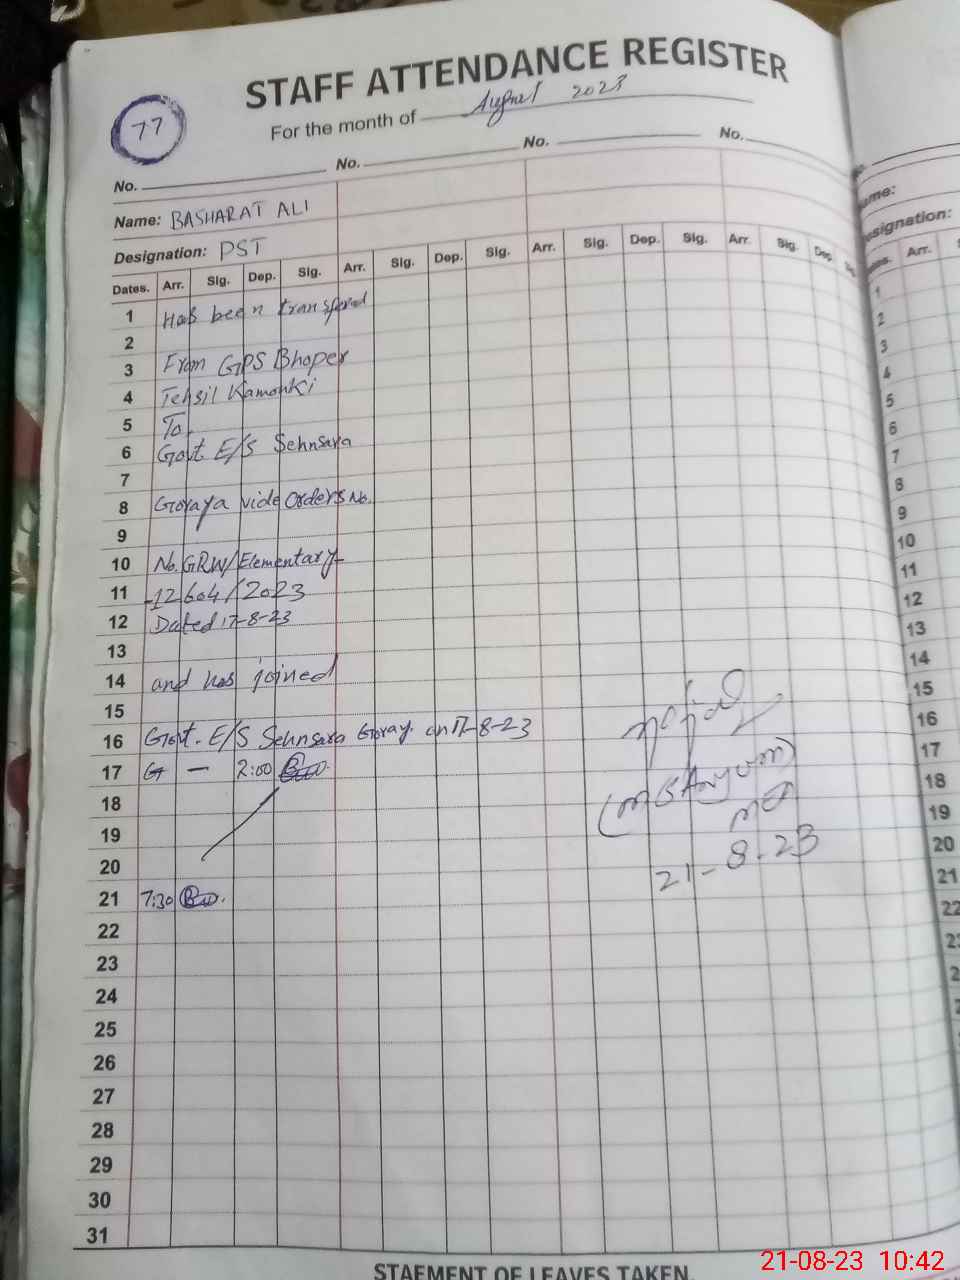 STAFF ATTENDANCE REGISTER
77
For the month of August 2023
No. No. No. No.
Name: BASHARAT ALI
Designation: PST
Dates. Arr. Sig. Dep. Sig. Arr. Sig. Dep. Sig. Arr. Sig. Dep. Sig. Arr. Sig. Dep.
1 Has been transfered
2
3 From GPS Bhoper
4 Tehsil Kamonki
5 To
6 Govt. E/S Sehnsara
7
8 Goraya vide orders No.
9
10 No. GRW/Elementary-
11 -12604/2023
12 Dated 17-8-23
13
14 and has joined
15
16 Govt. E/S Sehnsara Goray. on 17-8-23
17 2:00
18
19
20
21 7:30
22
23
24
25
26
27
28
29
30
31
21-8-23
STAEMENT OF LEAVES TAKEN.
Designation:
Arr.
1
2
3
4
5
6
7
8
9
10
11
12
13
14
15
16
17
18
19
20
21
22
21-08-23 10:42